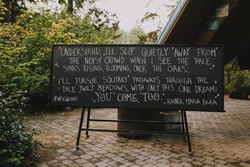 "UNDERSTAND, I'LL SLIP QUIETLY "AWAY" FROM
THE NOISY CROWD WHEN I SEE THE PALE
STARS RISING, BLOOMING, OVER THE OAKS.
I'LL PURSUE SOLITARY PATHWAYS THROUGH THE
PALE TWILIT MEADOWS, WITH ONLY THIS ONE DREAM:
YOU COME, TOO."
RAINER MARIA RILKE